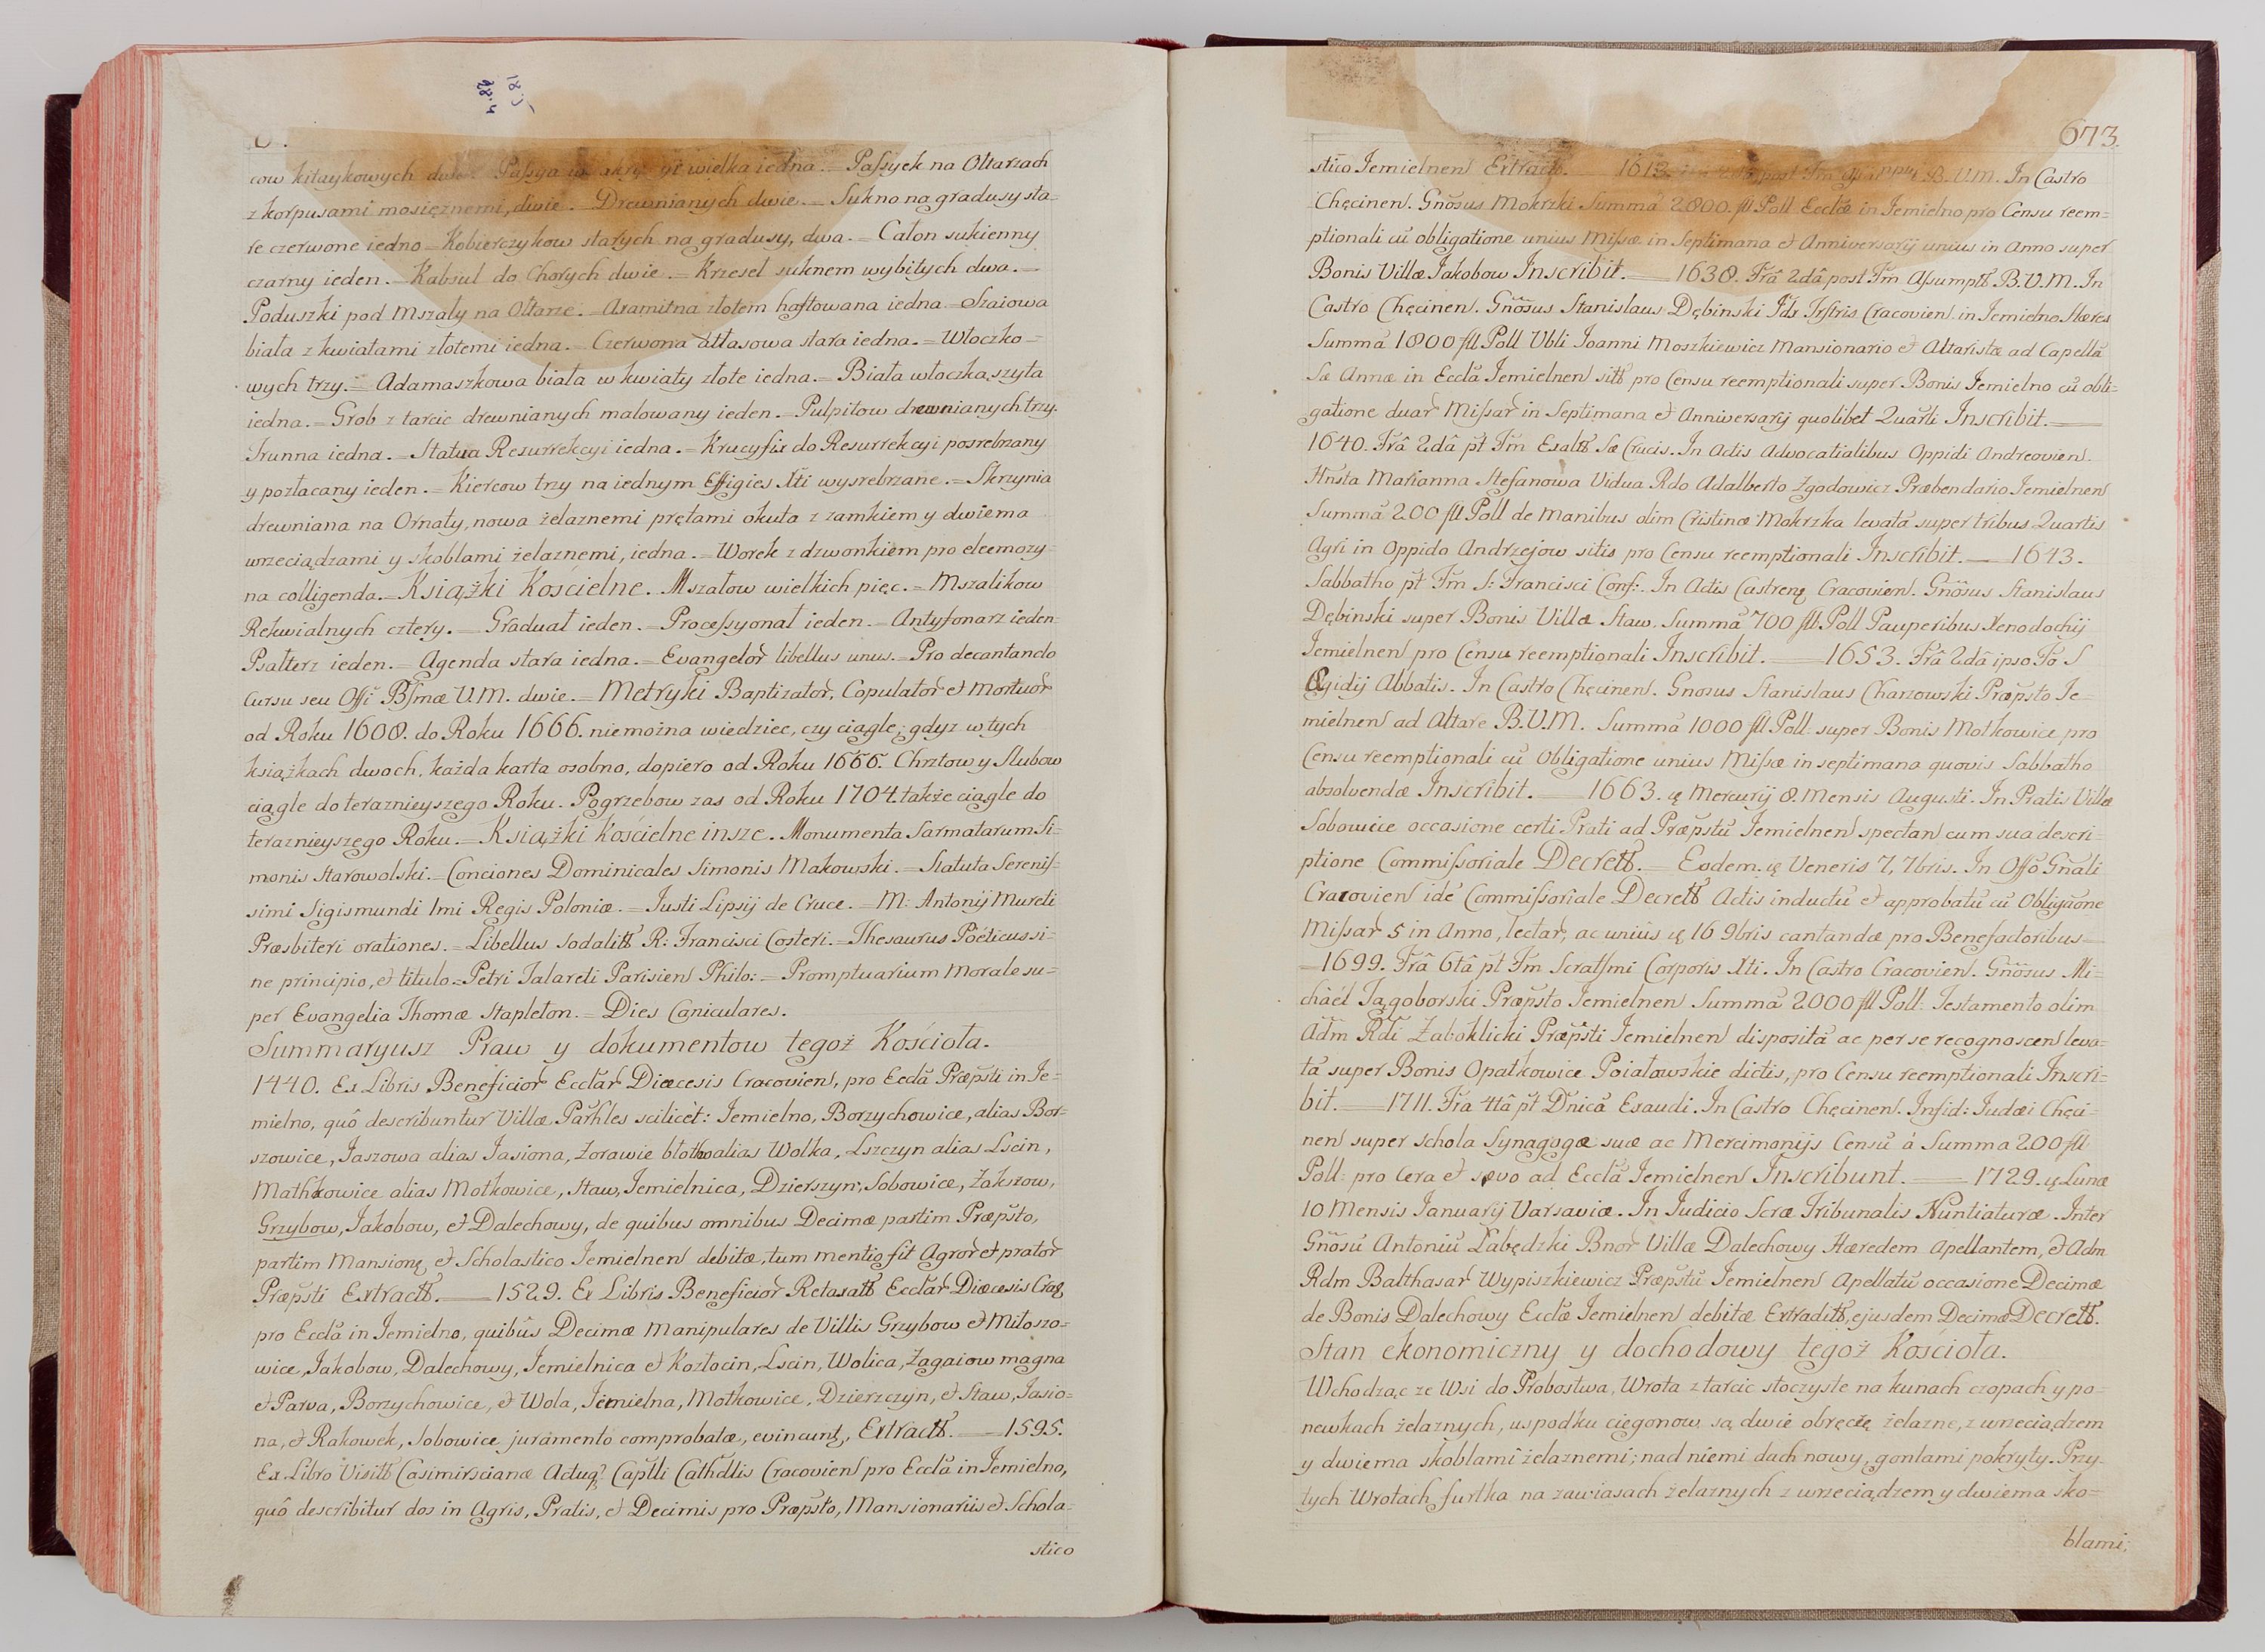 cow kitaykowych dwie. Passya wielka iedna. = Passyek na Ołtarzach
z korpusami mosięznemi, dwie. = Drewnianych dwie. = Sukno na gradusy sta=
re czerwone iedno = Kobierczykow starych na gradusy, dwa. = Całon sukienny
czarny ieden. = Kabsul do Chorych dwie. = Krzeseł suknem wybitych dwa. =
Poduszki pod Mszały na Ołtarze. = Axamitna złotem haftowana iedna = Szaiowa
biała z kwiatami złotemi iedna. = Czerwona atłasowa stara iedna. = Włoczko=
wych trzy. = Adamaszkowa biała w kwiaty złote iedna. = Biała włoczką szyta
iedna. = Grob z tarcic drewnianych malowany ieden. = Pulpitow drewnianych trzy.
Trunna iedna. = Statua Resurrekcyi iedna. = Krucyfix do Resurrekcyi posrebrzany
y pozłacany ieden. = Kiercow trzy na iednym Effigies Xti wysrebrzane. = Skrzynia
drewniana na Ornaty, nowa żelaznemi prętami okuta z zamkiem y dwiema
wrzeciądzami y skoblami żelaznemi, iedna. = Worek z dzwonkiem pro eleemozy=
na colligenda. = Książki Kościelne. Mszałow wielkich pięc. = Mszalikow
Rekwialnych cztery. = Graduał ieden. = Processyonał ieden. = Antyfonarz ieden
Psałterz ieden. = Agenda stara iedna. = Evangelor libellus unus. = Pro decantando
Cursu seu Offi Bsmæ V.M. dwie. = Metryki Baptizator, Copulator et Mortuor
od Roku 1608. do Roku 1666. niemożna wiedziec, czy ciągle; gdyz w tych
książkach dwoch, każda karta osobno, dopiero od Roku 1666. Chrztow y Slubow
ciągle do teraznieyszego Roku. Pogrzebow zas od Roku 1704. także ciągle do
teraznieyszego Roku. = Książki Kościelne insze. Monumenta Sarmatarum Si=
monis Starowolski. = Conciones Dominicales Simonis Makowski. = Statuta Serenis=
simi Sigismundi Imi Regis Poloniæ. = Justi Lipsij de Cruce. = M: Antonij Mureti
Præsbiteri orationes. = Libellus Sodalitt R: Francisci Costeri. = Thesaurus Pöeticus si=
ne principio, et titulo = Petri Talareti Parisien Philo: = Promptuarium Morale su=
per Evangelia Thomæ Stapleton. = Dies Caniculares.
Summaryusz Praw y dokumentow tegoż Kościoła.
1440. Ex Libris Beneficior Ecclar Diæcesis Cracovien, pro Eccla Præpsti in Je=
mielno, quô describuntur Villæ Parhles scilicèt: Jemielno, Borzychowice, alias Bor=
szowice, Jaszowa alias Jasiona, Zorawie błotho alias Wolka, Lszczyn alias Lscin,
Mathkowice alias Motkowice, Staw, Jemielnica, Dzierszyn, Sobowice, Zakszow,
Grzybow, Jakobow, et Dalechowy, de quibus omnibus Decimæ partim Præpsto,
partim Mansionę et Scholastico Jemielnen debitæ, tum mentio fit Agror et prator
Præpsti Extractt. — 1529. Ex Libris Beneficior Retaxatt Ecclar Diæcesis Crac
pro Eccla in Jemielno, quibus Decimæ Manipulares de Villis Grzybow et Miłoszo=
wice, Jakobow, Dalechowy, Jemielnica et Kozłocin, Lscin, Wolica, Zagaiow magna
et Parva, Borzychowice, et Wola, Jemielna, Motkowice, Dzierzczyn, et Staw, Jasio=
na, et Rakowek, Sobowice juramento comprobatæ, evincunt, Extractt. — 1595.
Ex Libro Visitt Casimirscianæ Actuq Captli Cathdlis Cracovien pro Eccla in Jemielno,
quô describitur dos in Agris, Pratis, et Decimis pro Præpsto, Mansionariis et Schola=
stico
673.
stico Jemielnen Extractt. 1613. post Fm B.V.M. In Castro
Chęcinen. Gnosus Mokrzki Summa 2800. fll Poll Ecclæ in Jemielno pro Censu reem=
ptionali cu obligatione unius Missæ in Septimana et Anniversarij unius in Anno super
Bonis Villæ Jakobow Inscribit. — 1638. Frâ 2dâ post Fm Assumptt B.V.M. In
Castro Chęcinen. Gnosus Stanislaus Dębinski Jdx Trstris Cracovien in Jemielno Hæres
Summa 1800 fll Poll Vbli Joanni Moszkiewicz Mansionario et Altaristæ ad Capella
Sæ Annæ in Eccla Jemielnen sitt pro Censu reemptionali super Bonis Jemielno cu obli=
gatione duar Missar in Septimana et Anniversarij quolibet Quarti Inscribit. —
1640. Frâ 2dâ pt Fm Exaltt Sæ Crucis. In Actis Advocatialibus Oppidi Andreovien.
Hnsta Marianna Stefanowa Vidua Rdo Adalberto Zgodowicz Præbendario Jemielnen
Summa 200 fll Poll de Manibus olim Cristinæ Mokrzka levata super tribus Quartis
Agri in Oppido Andrzejow sitis pro Censu reemptionali Inscribit. — 1643.
Sabbatho pt Fm S: Francisci Conf: In Actis Castrenę Cracovien. Gnosus Stanislaus
Dębinski super Bonis Villæ Staw, Summa 700 fll: Poll Pauperibus Xenodochij
Jemielnen pro Censu reemptionali Inscribit. — 1653. Frâ 2dâ ipso Fo S
Ægidij Abbatis. In Castro Chęcinen. Gnosus Stanislaus Charzowski Præpsto Je=
mielnen ad Altare B.V.M. Summa 1000 fll Poll: super Bonis Motkowice pro
Censu reemptionali cu Obligatione unius Missæ in septimana quovis Sabbatho
absolvendæ Inscribit. — 1663. ę Mercurij 8. Mensis Augusti. In Pratis Villæ
Sobowice occasione certi Prati ad Præpstu Jemielnen spectan cum sua descri=
ptione Commissoriale Decrett. — Eodem. ę Veneris 7, 7bris. In Offo Gnali
Cracovien ide Commissoriale Decrett Actis inductu et approbatu cu Obligaone
Missar 5 in Anno, lectar, ac unius ę 16 9bris cantandæ pro Benefactoribus —
— 1699. Frâ 6tâ pt Fm Scratsmi Corporis Xti. In Castro Cracovien. Gnosus Mi=
chäel Jągoborski Præpsto Jemielnen Summa 2000 fll Poll: Testamento olim
Adm Rdi Żaboklicki Præpsti Jemielnen disposita ac per se recognoscen leva=
ta super Bonis Opatkowice Poiałowskie dictis, pro Censu reemptionali Inscri=
bit. — 1711. Fra 4tâ pt Dnica Exaudi. In Castro Chęcinen. Infid: Judæi Chęci=
nen super Schola Synagogæ suæ ac Mercimonijs Censu à Summa 200 fll
Poll: pro Cera et sævo ad Eccla Jemielnen Inscribunt. — 1729. ę Lunæ
10 Mensis Januarij Varsaviæ. In Judicio Scræ Tribunalis Nuntiaturæ. Inter
Gnosu Antoniu Łabędzki Bnor Villæ Dalechowy Hæredem Apellantem, et Adm
Rdm Balthasar Wypiszkiewicz Præpstu Jemielnen Apellatu occasione Decimæ
de Bonis Dalechowy Ecclæ Jemielnen debitæ Extraditt, ejusdem Decimæ Decrett.
Stan ekonomiczny y dochodowy tegoż Kościoła.
Wchodząc ze Wsi do Probostwa, Wrota z tarcic stoczyste na kunach czopach y po=
newkach żelaznych, uspodku cięgonow są dwie obręczę żelazne, z wrzeciądzem
y dwiema skoblami żelaznemi; nad niemi dach nowy, gontami pokryty. Przy
tych Wrotach furtka na zawiasach żelaznych z wrzeciądzem y dwiema sko=
blami;